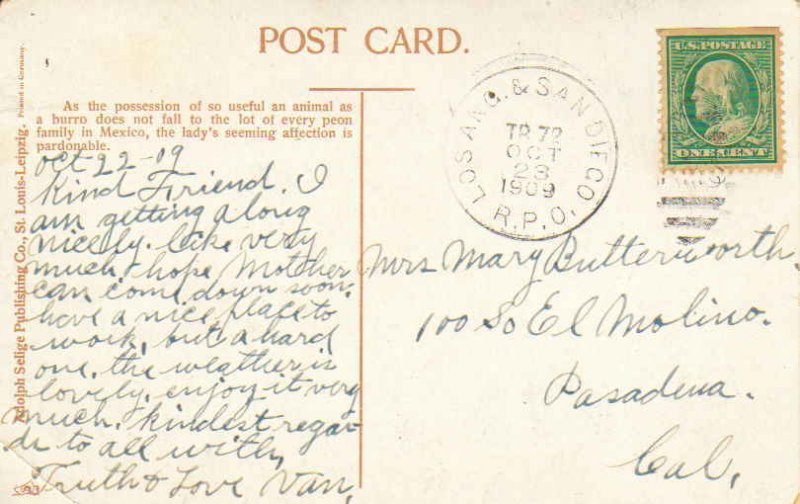 POST CARD.
U.S. POSTAGE
ONE CENT
LOS ANG. & SAN DIEGO
R.P.O.
TR 72
OCT
23
1909
As the possession of so useful an animal as
a burro does not fall to the lot of every peon
family in Mexico, the lady's seeming affection is
pardonable.
Adolph Selige Publishing Co., St. Louis-Leipzig. Printed in Germany.
Oct 22-09
Kind Friend. I
am getting along
nicely. like very
much & hope Mother
can come down soon.
have a nice place to
work, but a hard
one. the weather is
lovely. enjoy it very
much. kindest regar-
ds to all with,
Truth & Love Van.
Mrs Mary Butterworth.
100 So El Molino.
Pasadena.
Cal,